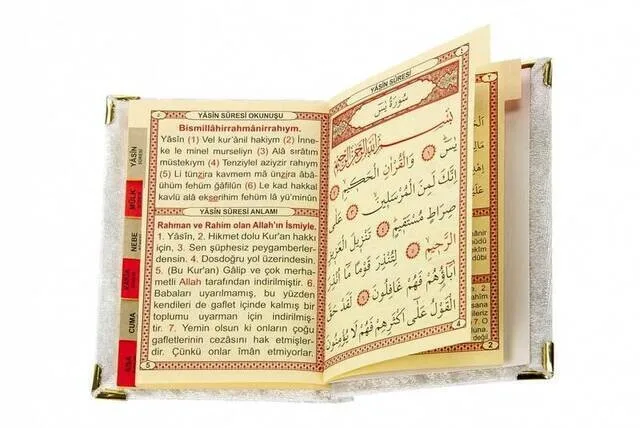 YÂSÎN SÛRESİ OKUNUŞU
Bismillâhirrahmânirrahıym.
Yâsîn (1) Vel kur'ânil hakiym (2) İnne-
ke le minel murseliyn (3) Alâ sırâtım
müstekıym (4) Tenziylel aziyzir rahıym
(5) Li tünzira kavmem mâ ünzira âbâ-
ühüm fehüm ğâfilûn (6) Le kad hakkal
kavlü alâ ekserihim fehüm lâ yü'minûn
YÂSÎN SÛRESİ ANLAMI
Rahman ve Rahim olan Allah'ın İsmiyle.
1. Yâsîn, 2. Hikmet dolu Kur'an hakkı
için, 3. Sen şüphesiz peygamberler-
densin. 4. Dosdoğru yol üzerindesin.
5. (Bu Kur'an) Gâlip ve çok merha-
metli Allah tarafından indirilmiştir. 6.
Babaları uyarılmamış, bu yüzden
kendileri de gaflet içinde kalmış bir
toplumu uyarman için indirilmiş-
tir. 7. Yemin olsun ki onların çoğu
gafletlerinin cezasını hak etmişler-
dir. Çünkü onlar îman etmiyorlar.
5
YÂSÎN
SÛRESİ
MÜLK
NEBE
CUMA
YÂSÎN SÛRESİ
سُورَةُ يٰسٓ
بِسْمِ اللّٰهِ الرَّحْمٰنِ الرَّحِيمِ
يٰسٓ ﴿١﴾ وَالْقُرْاٰنِ الْحَكِيمِ ﴿٢﴾
اِنَّكَ لَمِنَ الْمُرْسَلِينَ ﴿٣﴾ عَلٰى
صِرَاطٍ مُسْتَقِيمٍ ﴿٤﴾ تَنْزِيلَ الْعَزِيزِ
الرَّحِيمِ ﴿٥﴾ لِتُنْذِرَ قَوْمًا مَٓا اُنْذِرَ
اٰبَٓاؤُهُمْ فَهُمْ غَافِلُونَ ﴿٦﴾ لَقَدْ حَقَّ
الْقَوْلُ عَلٰٓى اَكْثَرِهِمْ فَهُمْ لَا يُؤْمِنُونَ
4
2